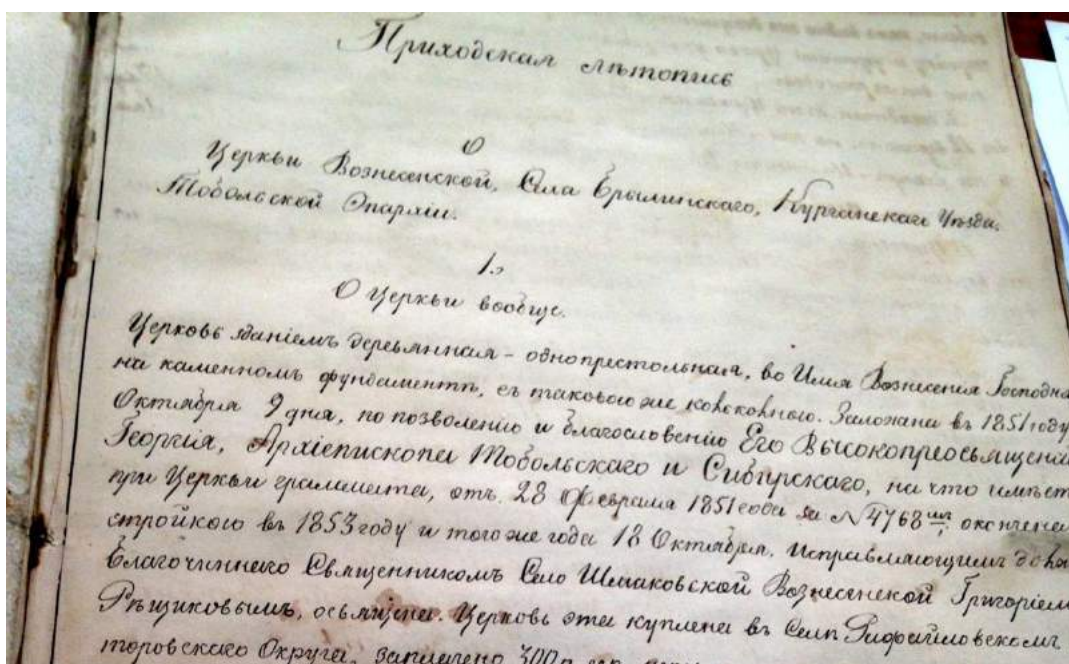 Приходская лѣтопись
О
Церкви Вознесенской, Села Брылинскаго, Курганскаго Уѣзда,
Тобольской Епархіи.
1.
О Церкви вообще.
Церковь зданіемъ деревянная - однопрестольная, во Имя Вознесенія Господня
на каменномъ фундаментѣ, съ таковою же колокольнею. Заложена въ 1851 году
Октября 9 дня, по позволенію и благословенію Его Высокопреосвящен
Георгія, Архіепископа Тобольскаго и Сибирскаго, на что имѣет
при Церкви грамmата, отъ 28 Февраля 1851 года за № 4768 окончена
стройкою въ 1853 году и того же года 18 Октября, исправляющимъ дол
Благочиннаго Священникомъ Село Шмаковской Вознесенской Григоріем
Рѣщиковымъ, освящена. Церковь эта куплена въ Селѣ Рафайловскомъ
торовскаго Округа, заплачено 300